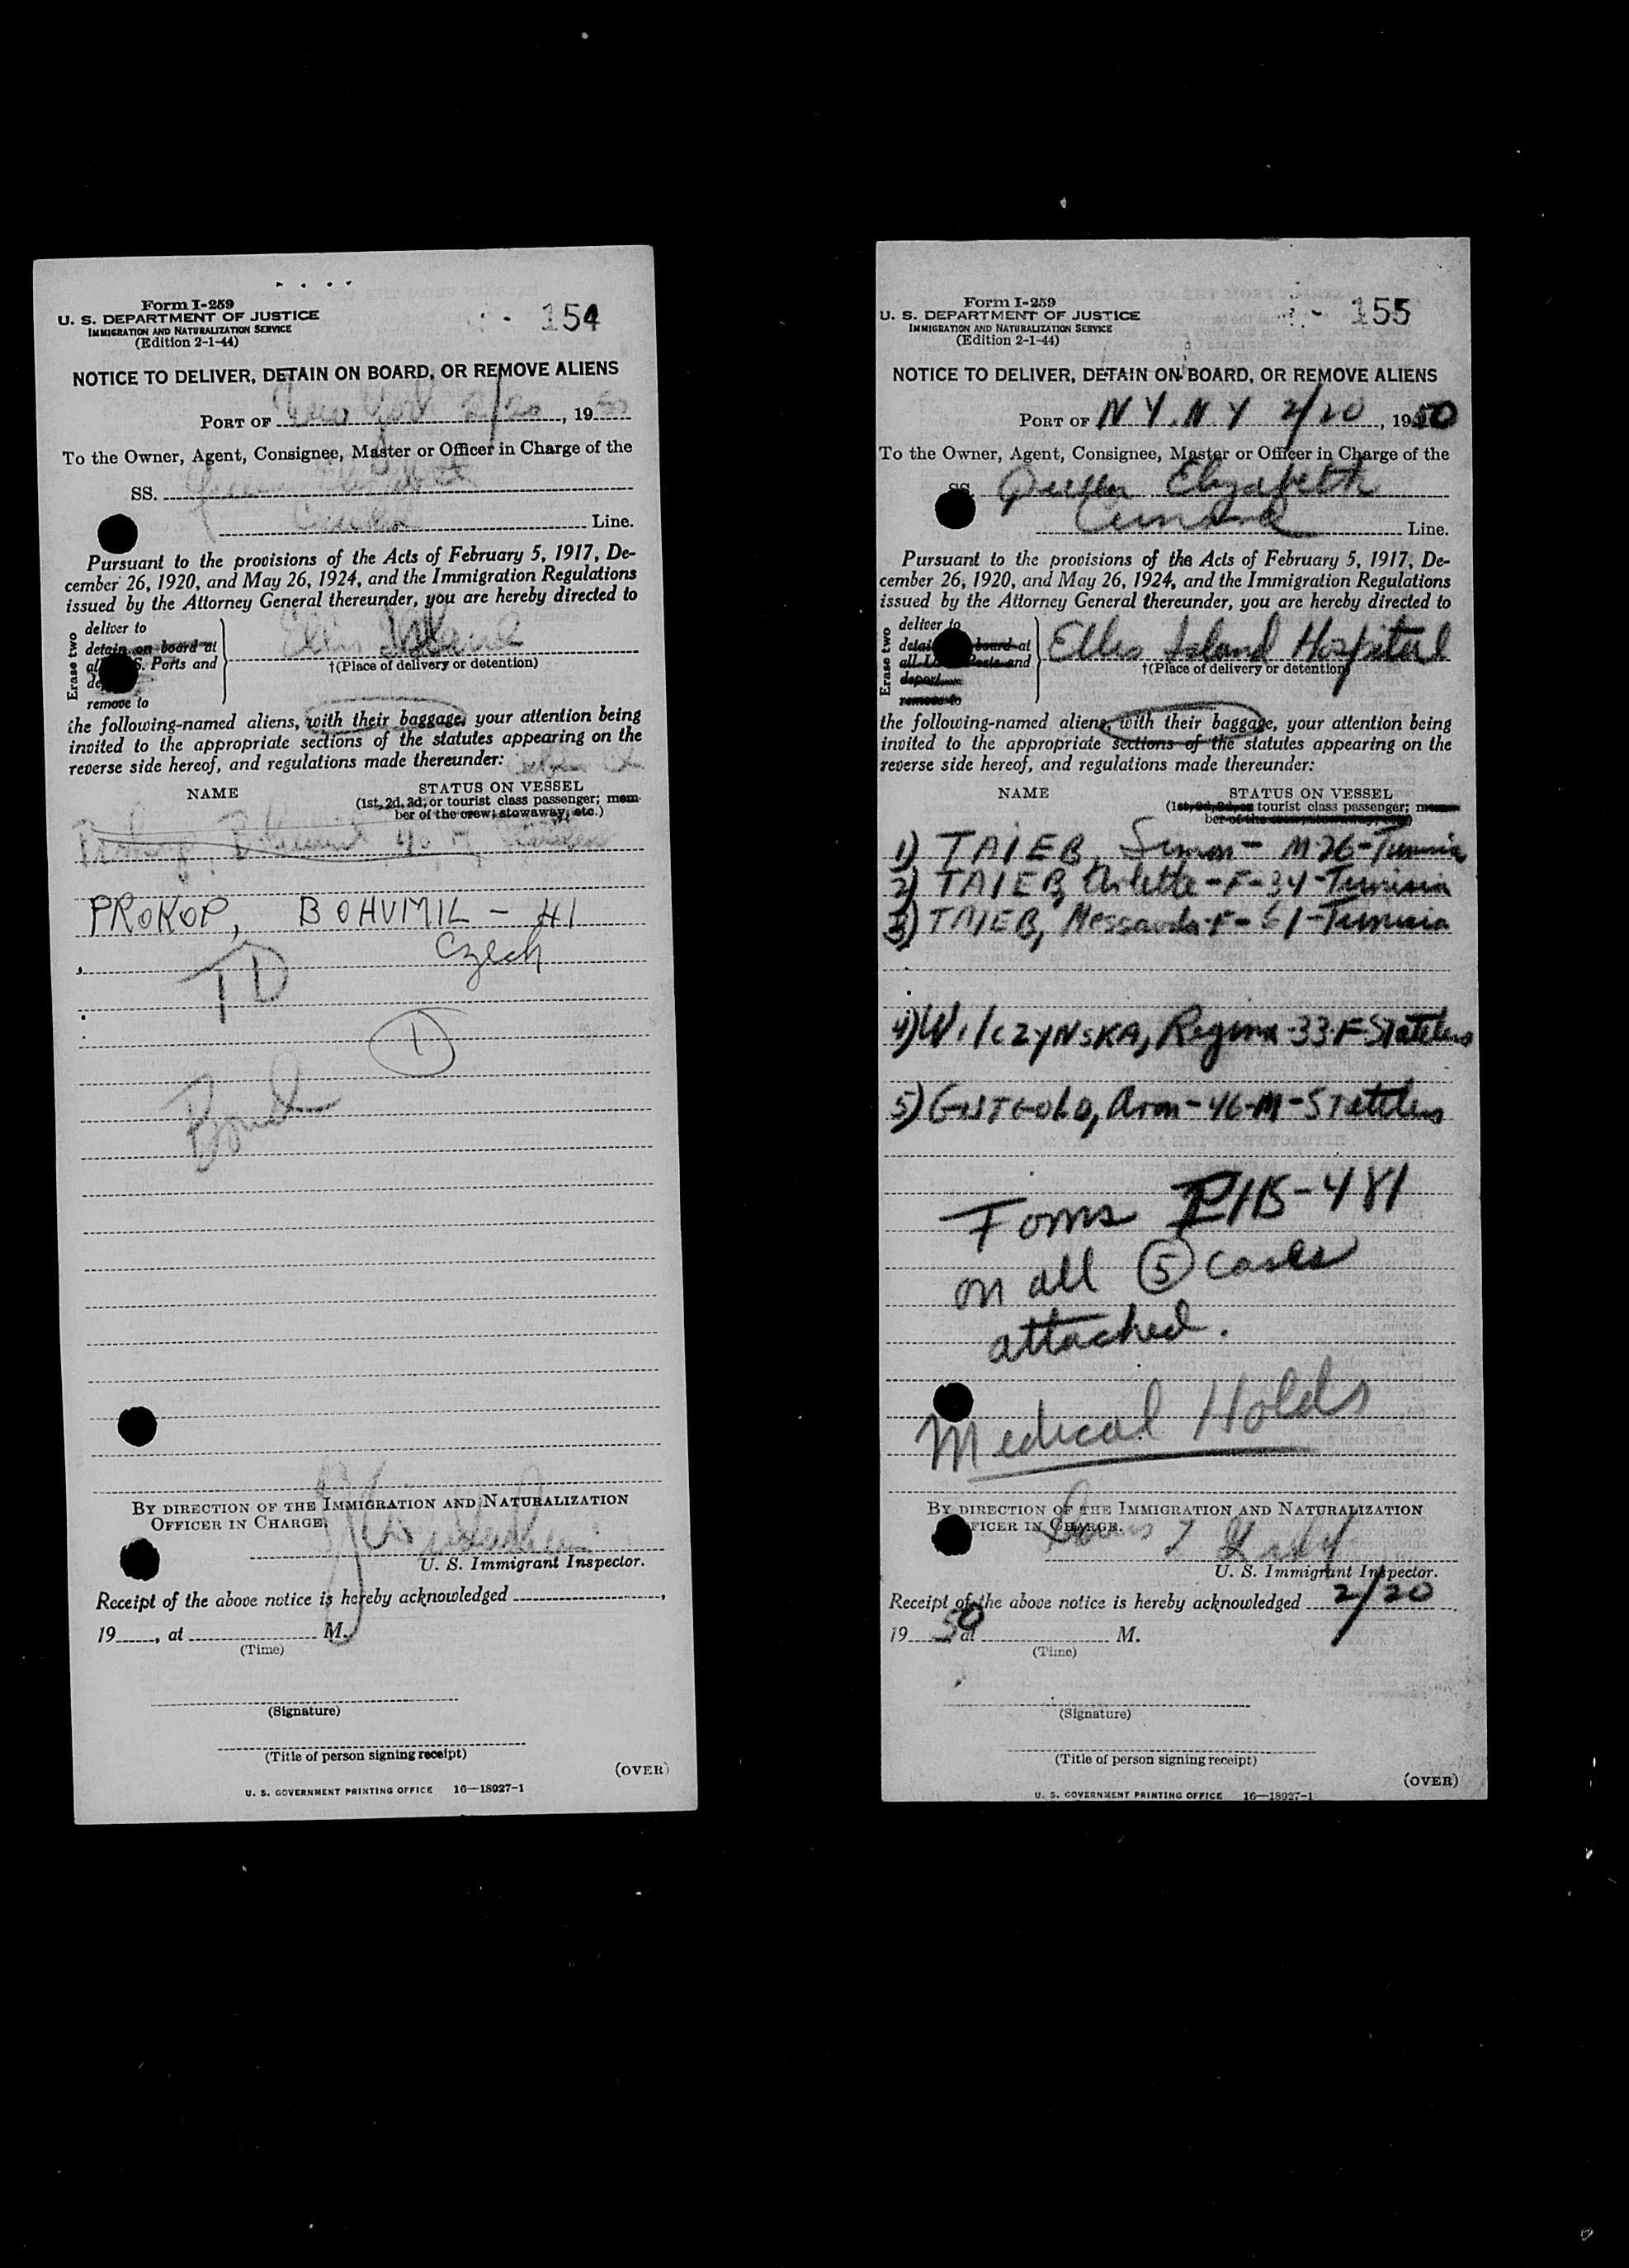 Form I-259
U. S. DEPARTMENT OF JUSTICE
IMMIGRATION AND NATURALIZATION SERVICE
(Edition 2-1-44)
154
NOTICE TO DELIVER, DETAIN ON BOARD, OR REMOVE ALIENS
PORT OF New York 2/20, 1950
To the Owner, Agent, Consignee, Master or Officer in Charge of the
SS. Queen Elizabeth
Cunard Line.
Pursuant to the provisions of the Acts of February 5, 1917, De-
cember 26, 1920, and May 26, 1924, and the Immigration Regulations
issued by the Attorney General thereunder, you are hereby directed to
Erase two
deliver to
detain on board at
S. Ports and
remove to
Ellis Island
†(Place of delivery or detention)
the following-named aliens, with their baggage, your attention being
invited to the appropriate sections of the statutes appearing on the
reverse side hereof, and regulations made thereunder:
NAME
STATUS ON VESSEL
(1st, 2d, 3d, or tourist class passenger; mem-
ber of the crew; stowaway, etc.)
Prokop, Bohumil 40 M
PROKOP, BOHUMIL - 41
Czech
TD
1
Bond
BY DIRECTION OF THE IMMIGRATION AND NATURALIZATION
OFFICER IN CHARGE.
U. S. Immigrant Inspector.
Receipt of the above notice is hereby acknowledged
19 , at M.
(Time)
(Signature)
(Title of person signing receipt)
(OVER)
U. S. GOVERNMENT PRINTING OFFICE 16—18927-1
Form I-259
U. S. DEPARTMENT OF JUSTICE
IMMIGRATION AND NATURALIZATION SERVICE
(Edition 2-1-44)
155
NOTICE TO DELIVER, DETAIN ON BOARD, OR REMOVE ALIENS
PORT OF N Y. N Y 2/20, 1950
To the Owner, Agent, Consignee, Master or Officer in Charge of the
SS. Queen Elizabeth
Cunard Line.
Pursuant to the provisions of the Acts of February 5, 1917, De-
cember 26, 1920, and May 26, 1924, and the Immigration Regulations
issued by the Attorney General thereunder, you are hereby directed to
Erase two
deliver to
board at
Ports and
deport
remove to
Ellis Island Hospital
†(Place of delivery or detention)
the following-named aliens, with their baggage, your attention being
invited to the appropriate sections of the statutes appearing on the
reverse side hereof, and regulations made thereunder:
NAME
STATUS ON VESSEL
(1st, 2d, 3d, or tourist class passenger; mem-
ber of the crew, stowaway, etc.)
1) TAIEB, Simon - M-26-Tunisia
2) TAIEB, Arlette - F - 34 - Tunisia
3) TAIEB, Messaouda-F- 61-Tunisia
4) WILCZYNSKA, Regina-33-F-Stateless
5) GUTGOLD, Aron-46-M-Stateless
Forms PHS-481
on all 5 cases
attached.
Medical Holds
BY DIRECTION OF THE IMMIGRATION AND NATURALIZATION
OFFICER IN CHARGE.
U. S. Immigrant Inspector.
Receipt of the above notice is hereby acknowledged 2/20
19 50 at M.
(Time)
(Signature)
(Title of person signing receipt)
(OVER)
U. S. GOVERNMENT PRINTING OFFICE 16—18927-1